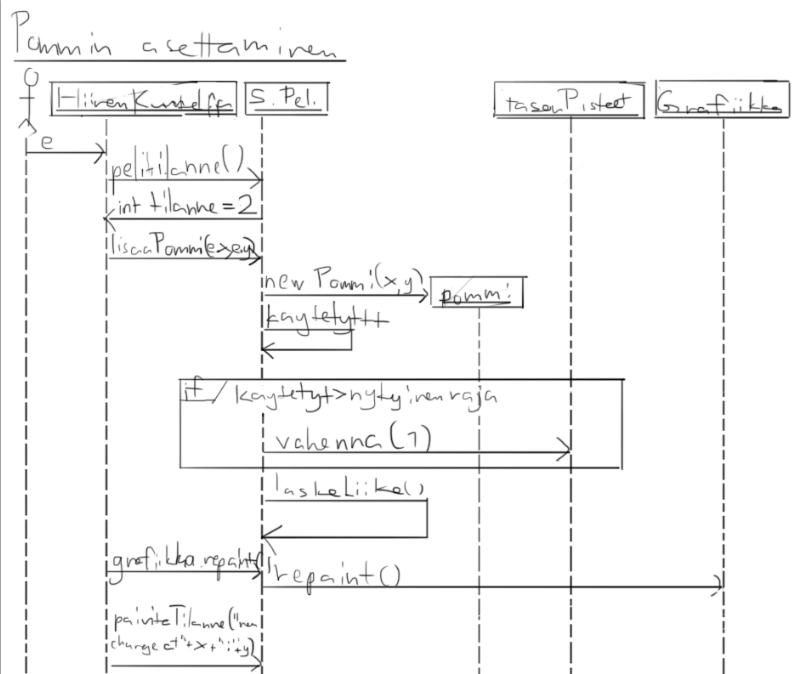 Pommin asettaminen
HiirenKuuntelija
S.Pel.
tasonPisteet
Grafiikka
e
pelitilanne()
int tilanne=2
lisaaPommi(e.x,e.y)
new Pommi(x,y)
pommi
kaytetyt++
if
kaytetyt>nykyinenraja
vahenna(1)
laskeLiike()
grafiikka.repaint()
repaint()
paivitaTilanne("new
charge at"+x+":"+y)